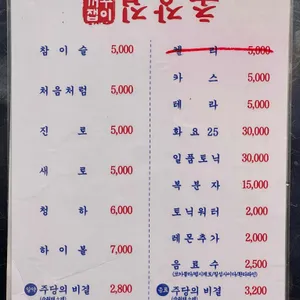 초장집
참이슬 5,000
처음처럼 5,000
진로 5,000
새로 5,000
청하 6,000
하이볼 7,000
주당의 비결 2,800
켈리 5,000
카스 5,000
테라 5,000
화요25 30,000
일품토닉 30,000
복분자 15,000
토닉워터 2,000
레몬추가 2,000
음료수 2,500
주당의 비결 3,200